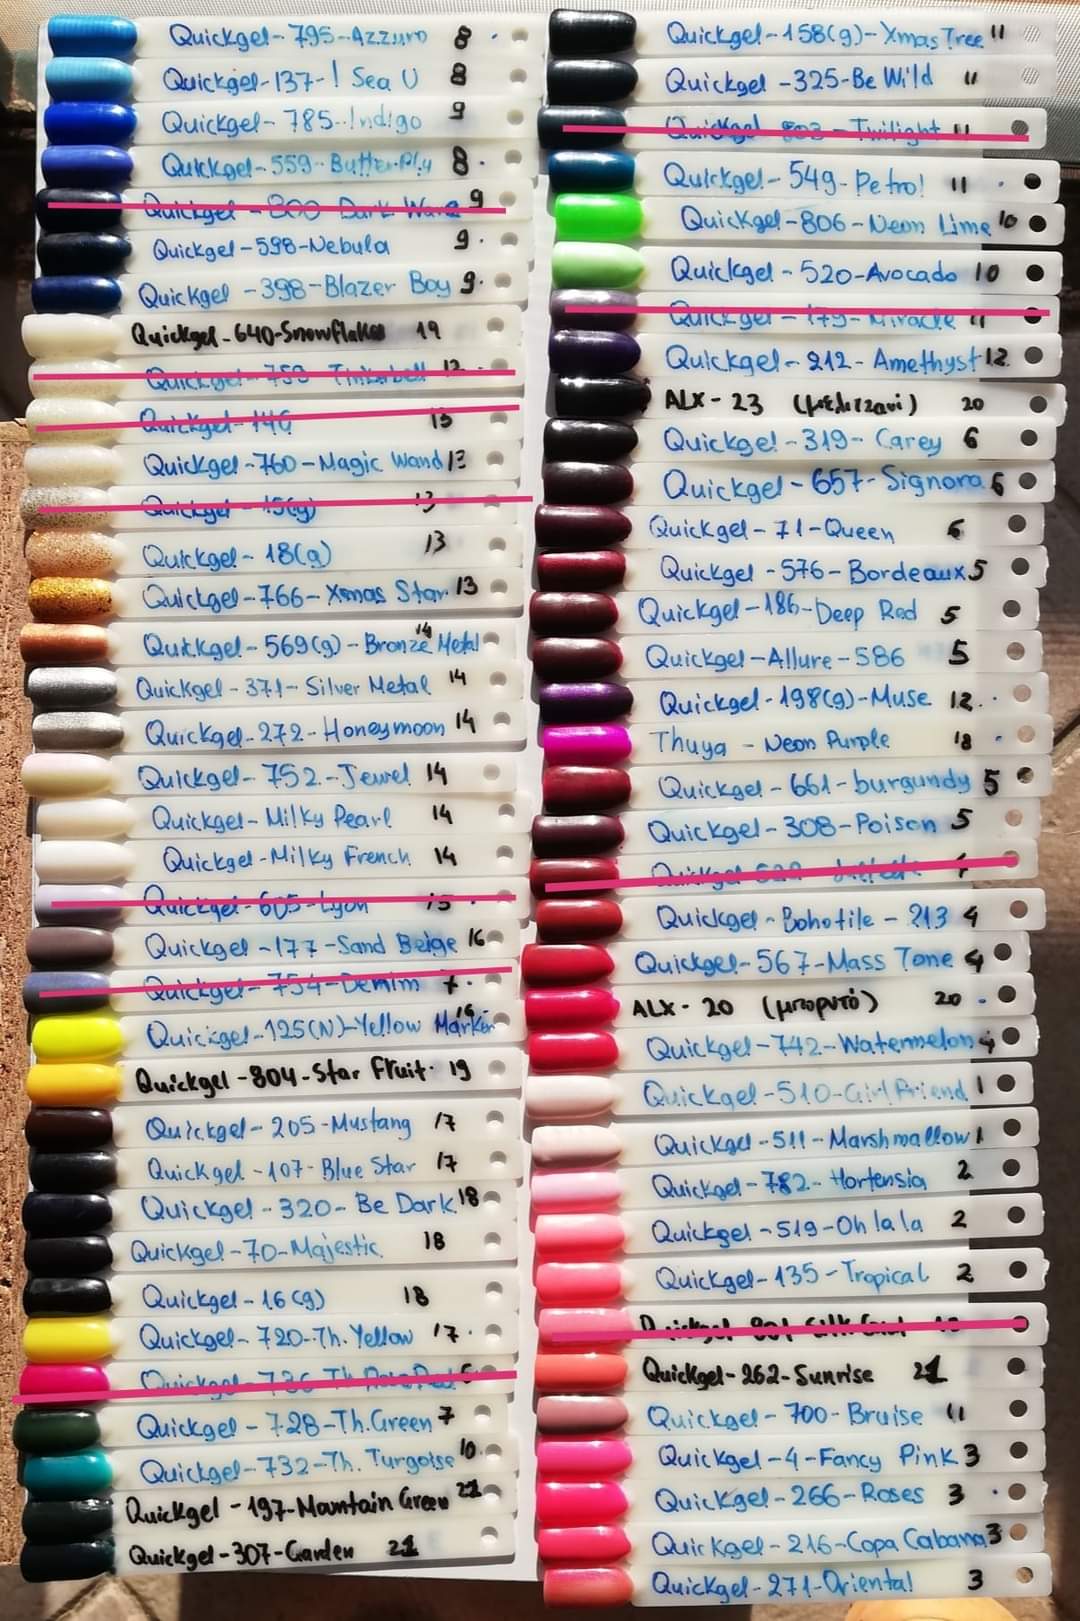 Quickgel-795-Azzuro 8
Quickgel-137-! Sea U 8
Quickgel-785-Indigo 9
Quickgel-559-Butterfly 8
Quickgel-800-Dark Wave 9
Quickgel-598-Nebula 9
Quickgel-398-Blazer Boy 9
Quickgel-640-Snowflakes 19
Quickgel-759-Tinkerbell 12
Quickgel-140 13
Quickgel-760-Magic Wand 13
Quickgel-15(g) 13
Quickgel-18(g) 13
Quickgel-766-Xmas Star 13
Quickgel-569(g)-Bronze Metal 14
Quickgel-371-Silver Metal 14
Quickgel-272-Honeymoon 14
Quickgel-752-Jewel 14
Quickgel-Milky Pearl 14
Quickgel-Milky French 14
Quickgel-605-Lyon 15
Quickgel-177-Sand Beige 16
Quickgel-754-Denim 7
Quickgel-125(N)-Yellow Marker 16
Quickgel-804-Star Fruit 19
Quickgel-205-Mustang 17
Quickgel-107-Blue Star 17
Quickgel-320-Be Dark 18
Quickgel-70-Majestic 18
Quickgel-16(g) 18
Quickgel-720-Th.Yellow 17
Quickgel-736-Th.Rose Red 6
Quickgel-728-Th.Green 7
Quickgel-732-Th.Turgoise 10
Quickgel-197-Mountain Green 21
Quickgel-307-Garden 21
Quickgel-158(g)-Xmas Tree 11
Quickgel-325-Be Wild 11
Quickgel-803-Twilight 11
Quickgel-549-Petrol 11
Quickgel-806-Neon Lime 10
Quickgel-520-Avocado 10
Quickgel-179-Miracle 11
Quickgel-212-Amethyst 12
ALX-23 (μελιτζανί) 20
Quickgel-319-Carey 6
Quickgel-657-Signora 6
Quickgel-71-Queen 6
Quickgel-576-Bordeaux 5
Quickgel-186-Deep Red 5
Quickgel-Allure-586 5
Quickgel-198(g)-Muse 12
Thuya-Neon Purple 18
Quickgel-661-burgundy 5
Quickgel-308-Poison 5
Quickgel 4
Quickgel-Bohofile-213 4
Quickgel-567-Mass Tone 4
ALX-20 (μπορντό) 20
Quickgel-742-Watermelon 4
Quickgel-510-Girlfriend 1
Quickgel-511-Marshmallow 1
Quickgel-782-Hortensia 2
Quickgel-519-Oh la la 2
Quickgel-135-Tropical 2
Quickgel-801-Silk
Quickgel-262-Sunrise 21
Quickgel-700-Bruise 11
Quickgel-4-Fancy Pink 3
Quickgel-266-Roses 3
Quickgel-216-Copa Cabana 3
Quickgel-271-Oriental 3